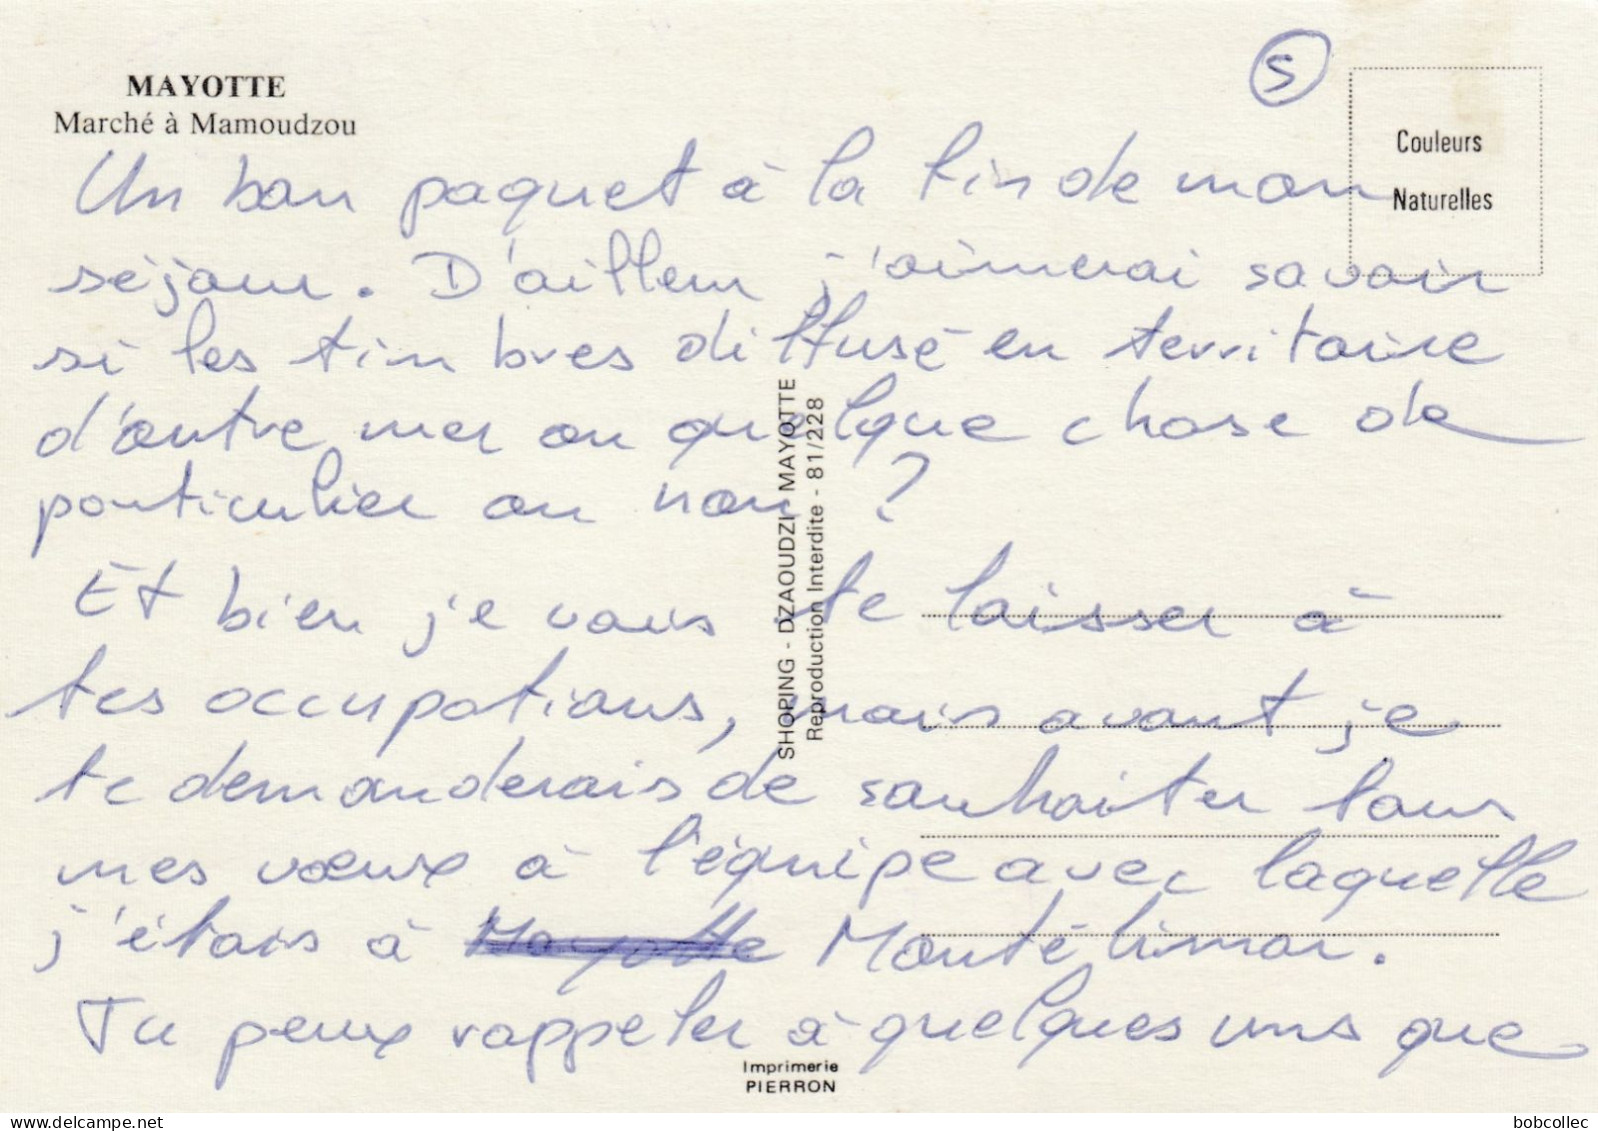 MAYOTTE
Marché à Mamoudzou
5
Couleurs
Naturelles
Un bon paquet à la fin de mon
séjour. D'ailleur j'aimerai savoir
si les timbres diffusé en territoire
d'outre mer on quelque chose de
particulier ou non ?
Et bien je vais te laisser à
tes occupations, mais avant je
te demanderais de souhaiter tous
mes vœux à l'équipe avec laquelle
j'étais à Mayotte Montélimar.
Tu peux rappeler à quelques uns que
SHOPING - DZAOUDZI MAYOTTE
Reproduction Interdite - 81/228
Imprimerie
PIERRON
bobcollec